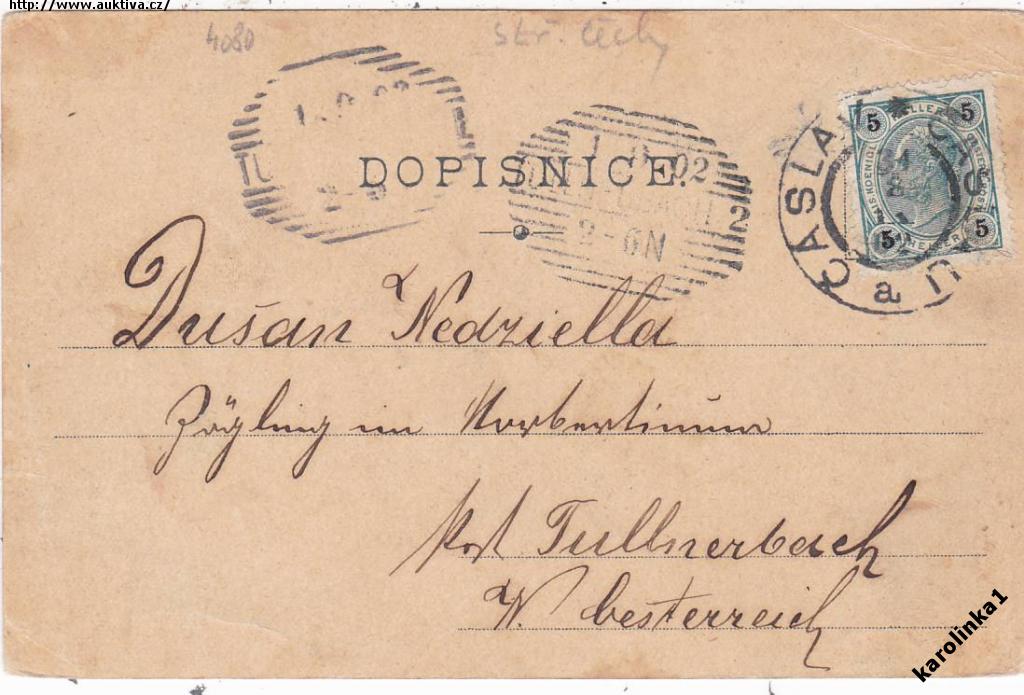 http://www.auktiva.cz/
4080
Stř. Čechy
DOPISNICE.
02
2-6N
ČASLAV
a
5 5
5 5
Dušan Nedziella
Zögling im Norbertinum
Post Tullnerbach
N. Oesterreich
karolinka1